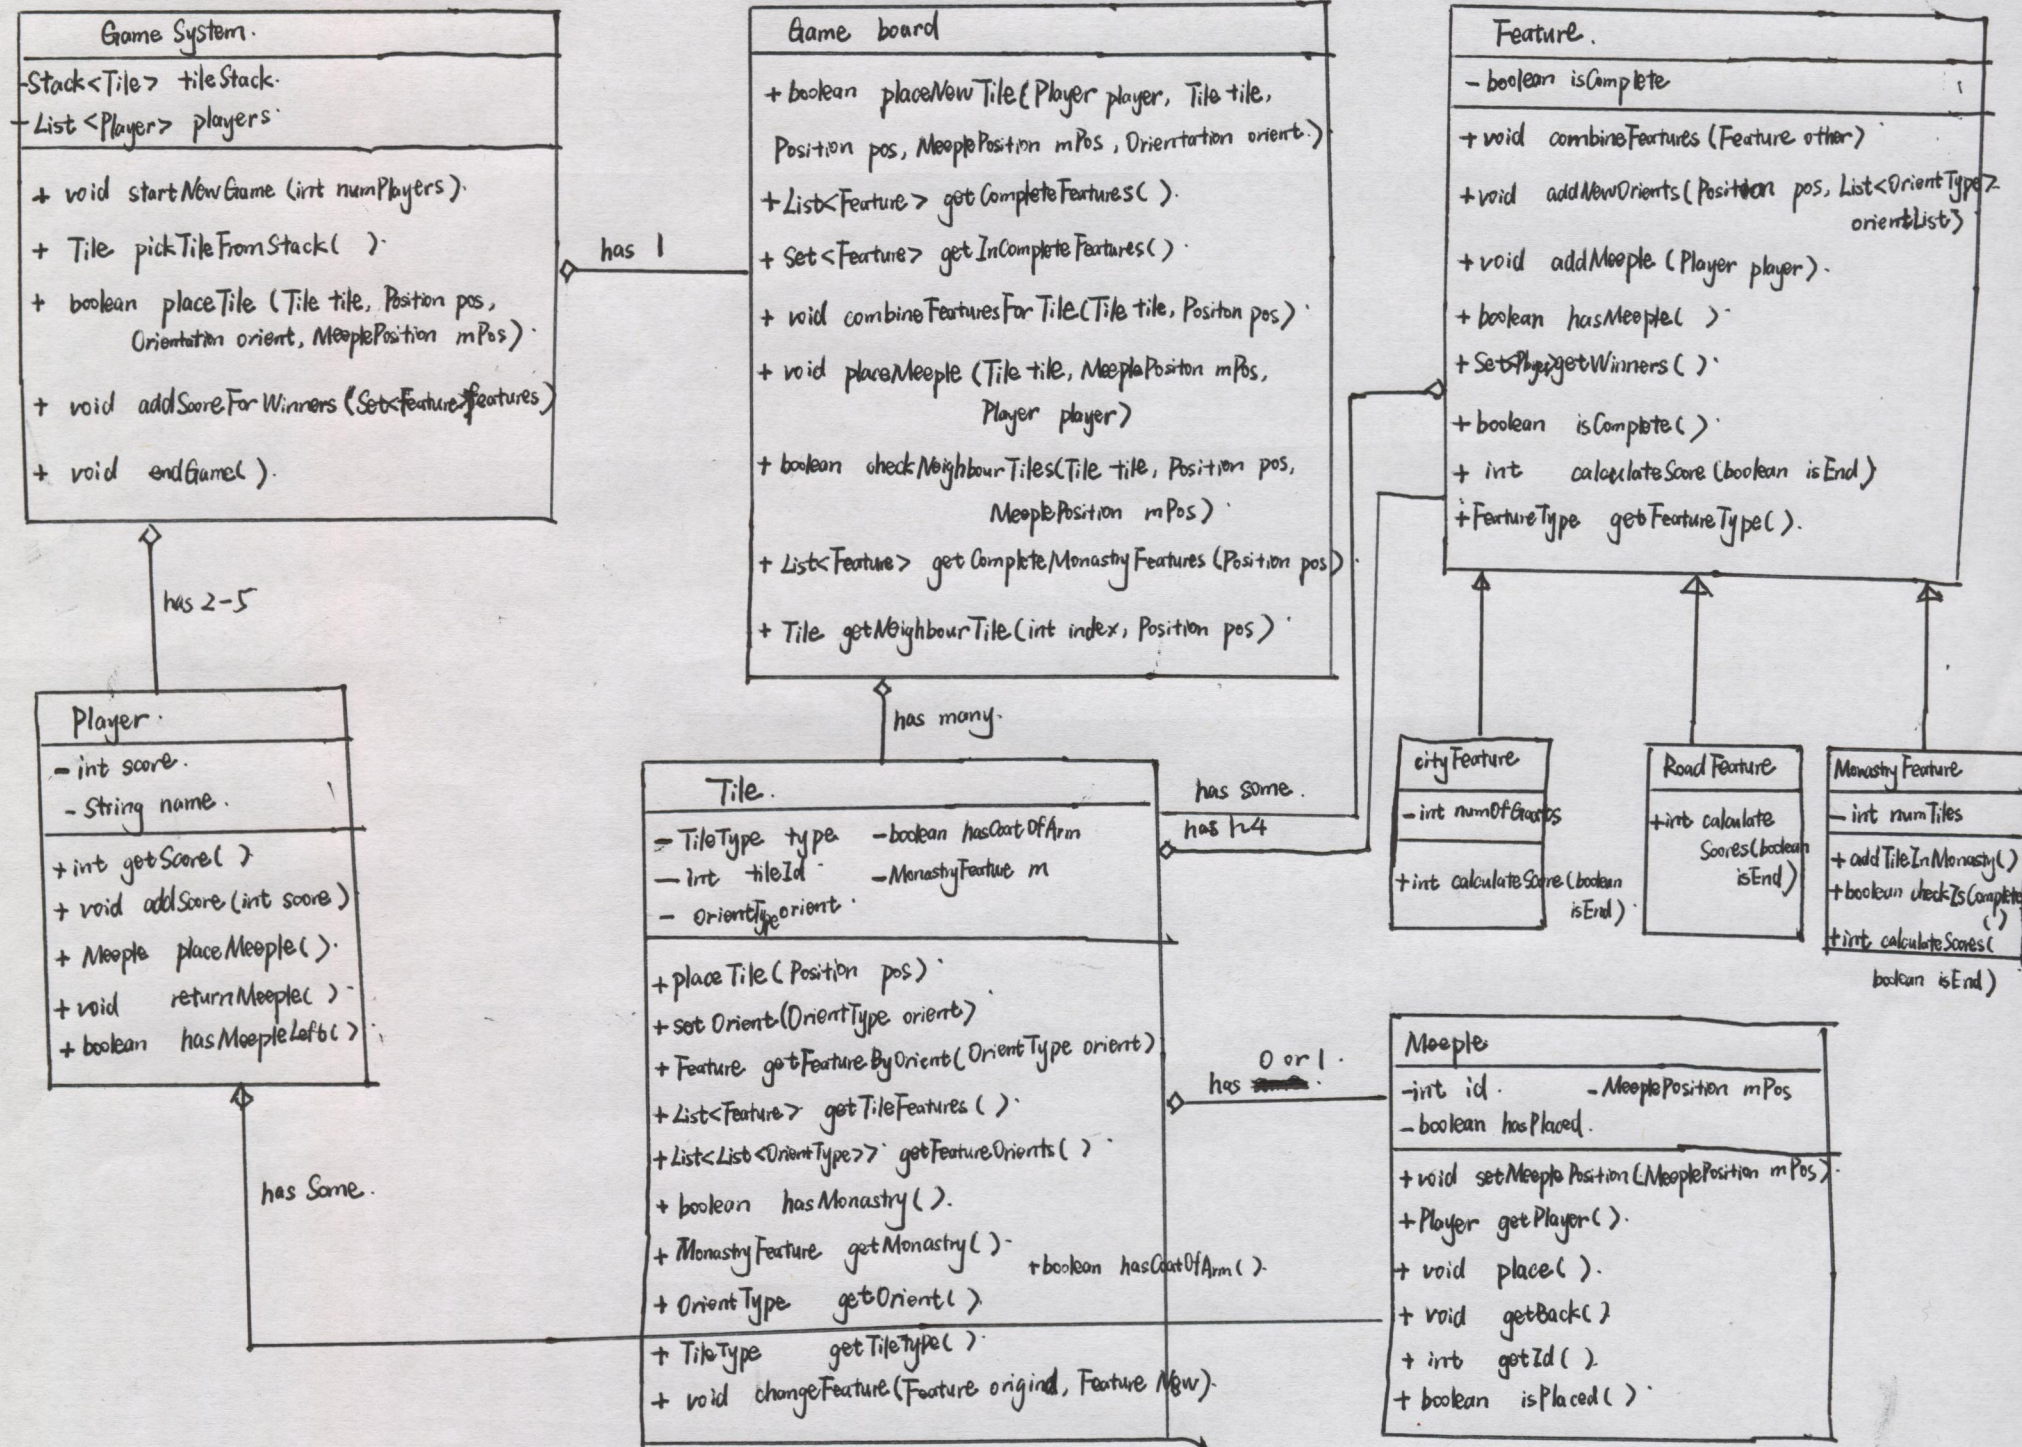 Game System.
-Stack<Tile> tileStack.
-List<Player> players
+ void startNewGame (int numPlayers).
+ Tile pickTileFromStack( ).
+ boolean placeTile (Tile tile, Position pos,
Orientation orient, MeeplePosition mPos)
+ void addScoreForWinners (Set<Feature> features)
+ void endGame( ).
has 1
has 2-5
Game board
+ boolean placeNewTile(Player player, Tile tile,
Position pos, MeeplePosition mPos, Orientation orient.)
+ List<Feature> getCompleteFeatures( ).
+ Set<Feature> getInCompleteFeatures( ).
+ void combineFeaturesForTile(Tile tile, Positon pos)
+ void placeMeeple (Tile tile, MeeplePositon mPos,
Player player)
+ boolean checkNeighbourTiles(Tile tile, Position pos,
MeeplePosition mPos)
+ List<Feature> getCompleteMonastryFeatures (Position pos)
+ Tile getNeighbourTile(int index, Position pos)
has many.
Feature.
- boolean isComplete
+ void combineFeatures (Feature other)
+ void addNewOrients(Position pos, List<OrientType>
orientList)
+ void addMeeple (Player player).
+ boolean hasMeeple( ).
+ Set<Player> getWinners ( ).
+ boolean isComplete( ).
+ int calculateScore (boolean isEnd)
+ FeatureType getFeatureType( ).
Player.
- int score.
- String name.
+ int getScore( )
+ void addScore (int score)
+ Meeple placeMeeple( ).
+ void returnMeeple( )
+ boolean hasMeepleLeft( )
has Some.
Tile.
- TileType type - boolean hasCoatOfArm
- int tileId - MonastryFeature m
- OrientType orient
+ placeTile (Position pos)
+ set Orient(OrientType orient)
+ Feature getFeatureByOrient(OrientType orient)
+ List<Feature> getTileFeatures ( ).
+ List<List<OrientType>> getFeatureOrients ( )
+ boolean hasMonastry ( ).
+ MonastryFeature getMonastry( )
+ boolean hasCoatOfArm ( ).
+ OrientType getOrient( )
+ TileType getTileType( )
+ void changeFeature(Feature original, Feature New).
has some.
has 1~4
has 0 or 1.
cityFeature
- int numOfGuards
+ int calculateScore (boolean
isEnd)
RoadFeature
+ int calculate
Scores(boolean
isEnd)
MonastryFeature
- int numTiles
+ addTileInMonasty( )
+ boolean checkIsComplete
( )
+ int calculateScores(
boolean isEnd)
Meeple
- int id. - MeeplePosition mPos
- boolean hasPlaced.
+ void setMeeplePosition (MeeplePosition mPos).
+ Player getPlayer( ).
+ void place( ).
+ void getBack( )
+ int getId ( ).
+ boolean isPlaced ( )